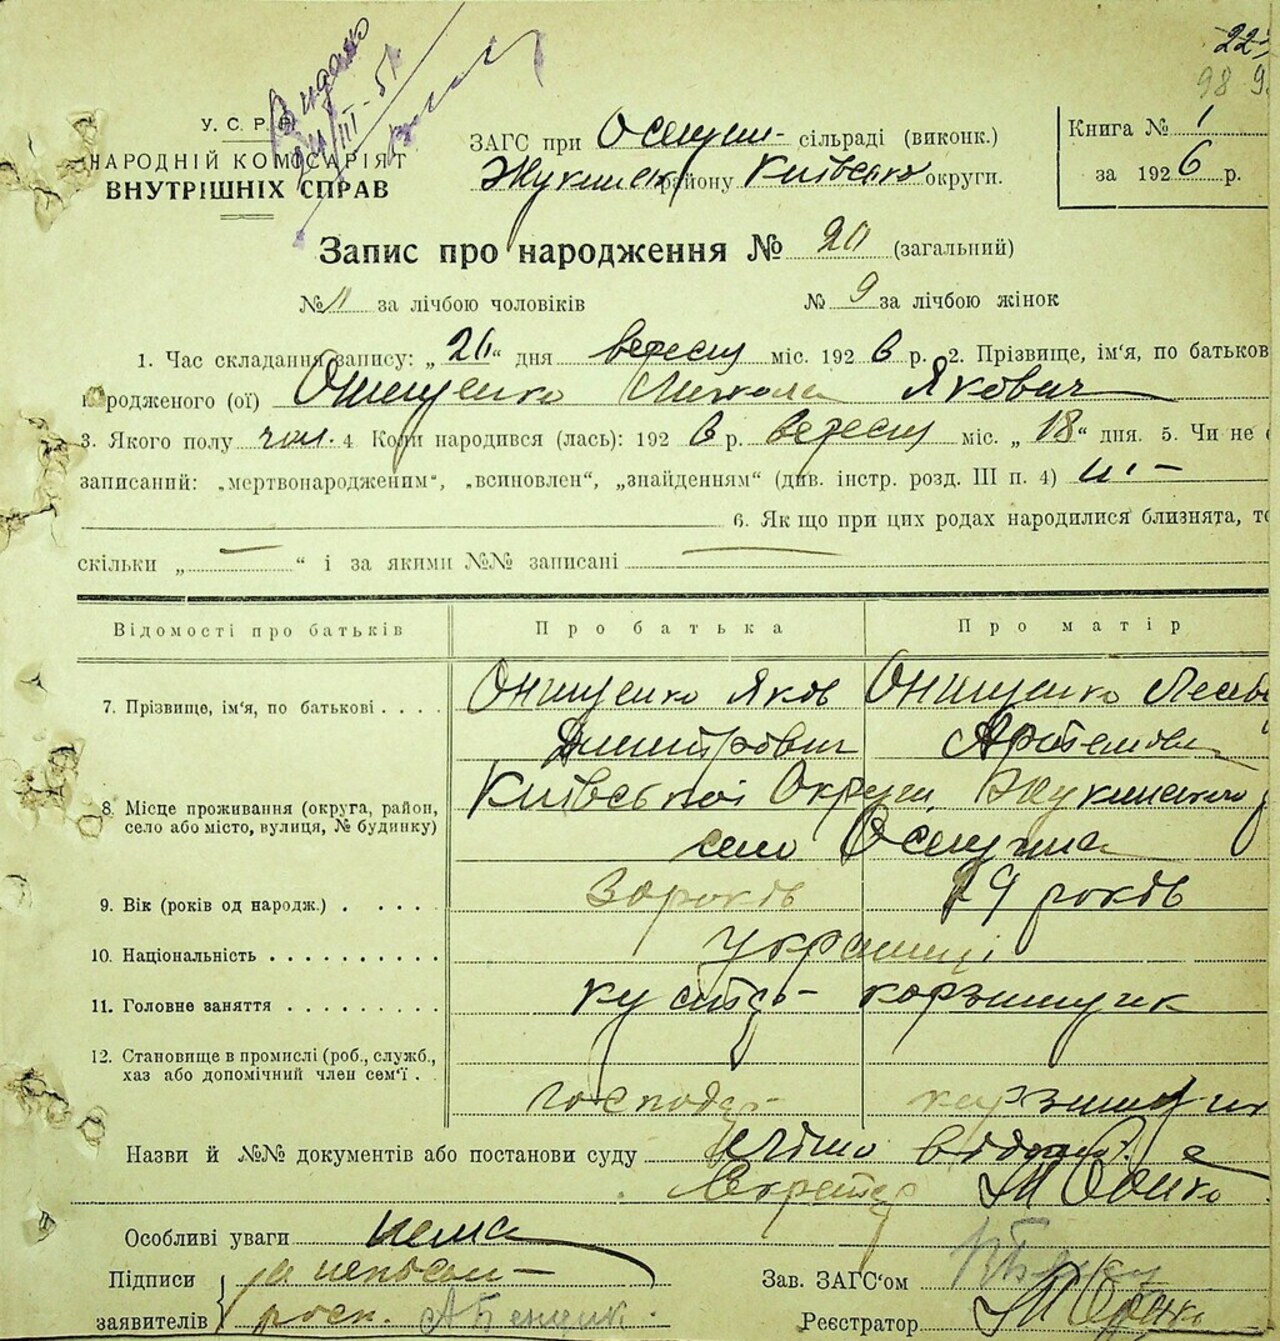 22
98 9
Видано
III-51
У. С. Р. Р.
НАРОДНІЙ КОМІСАРІЯТ
ВНУТРІШНІХ СПРАВ
ЗАГС при Осещин- сільраді (виконк.)
Жукинськ району Київсько округи.
Книга № 1
за 1926 р.
Запис про народження № 20 (загальний)
№ 11 за лічбою чоловіків № 9 за лічбою жінок
1. Час складання запису: „20“ дня вересня міс. 1926 р. 2. Прізвище, ім'я, по батьков
родженого (ої) Онищенко Микола Якович
3. Якого полу чол. 4 Коли народився (лась): 1926 р. вересня міс. „18“ дня. 5. Чи не
записаний: „мертвонародженим“, „всиновлен“, „знайденням“ (див. інстр. розд. III п. 4) ні-
6. Якщо при цих родах народилися близнята, то
скільки „ — “ і за якими №№ записані —
Відомості про батьків Про батька Про матір
7. Прізвище, ім'я, по батькові . . . . Онищенко Яков Онищенко
Дмитрович Артемовна
8. Місце проживання (округа, район, село або місто, вулиця, № будинку) Київської Округи, Жукинського
село Осещина
9. Вік (років од народж.) . . . . . 30 років 29 років
10. Національність . . . . . . . . . . українці
11. Головне заняття . . . . . . . . . кустарь- корзинщик
12. Становище в промислі (роб., служб.,
хаз або допомічний член сем'ї . .
господар корзинщик
Назви й №№ документів або постанови суду
Секретар
Особливі уваги нема
Підписи за неписьм-
заявителів розп. А Бенщик.
Зав. ЗАГС'ом
Реєстратор